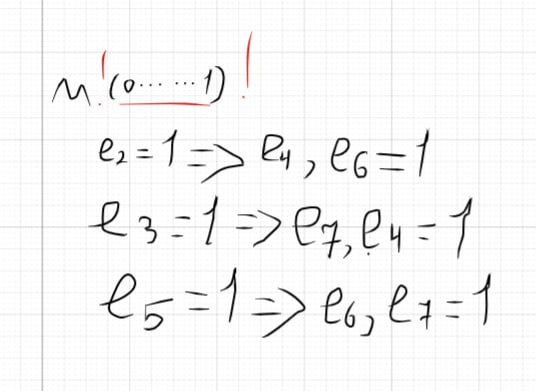 M!(0......1)!
e₂=1=>e₄,e₆=1
e₃=1=>e₇,e₄=1
e₅=1=>e₆,e₇=1